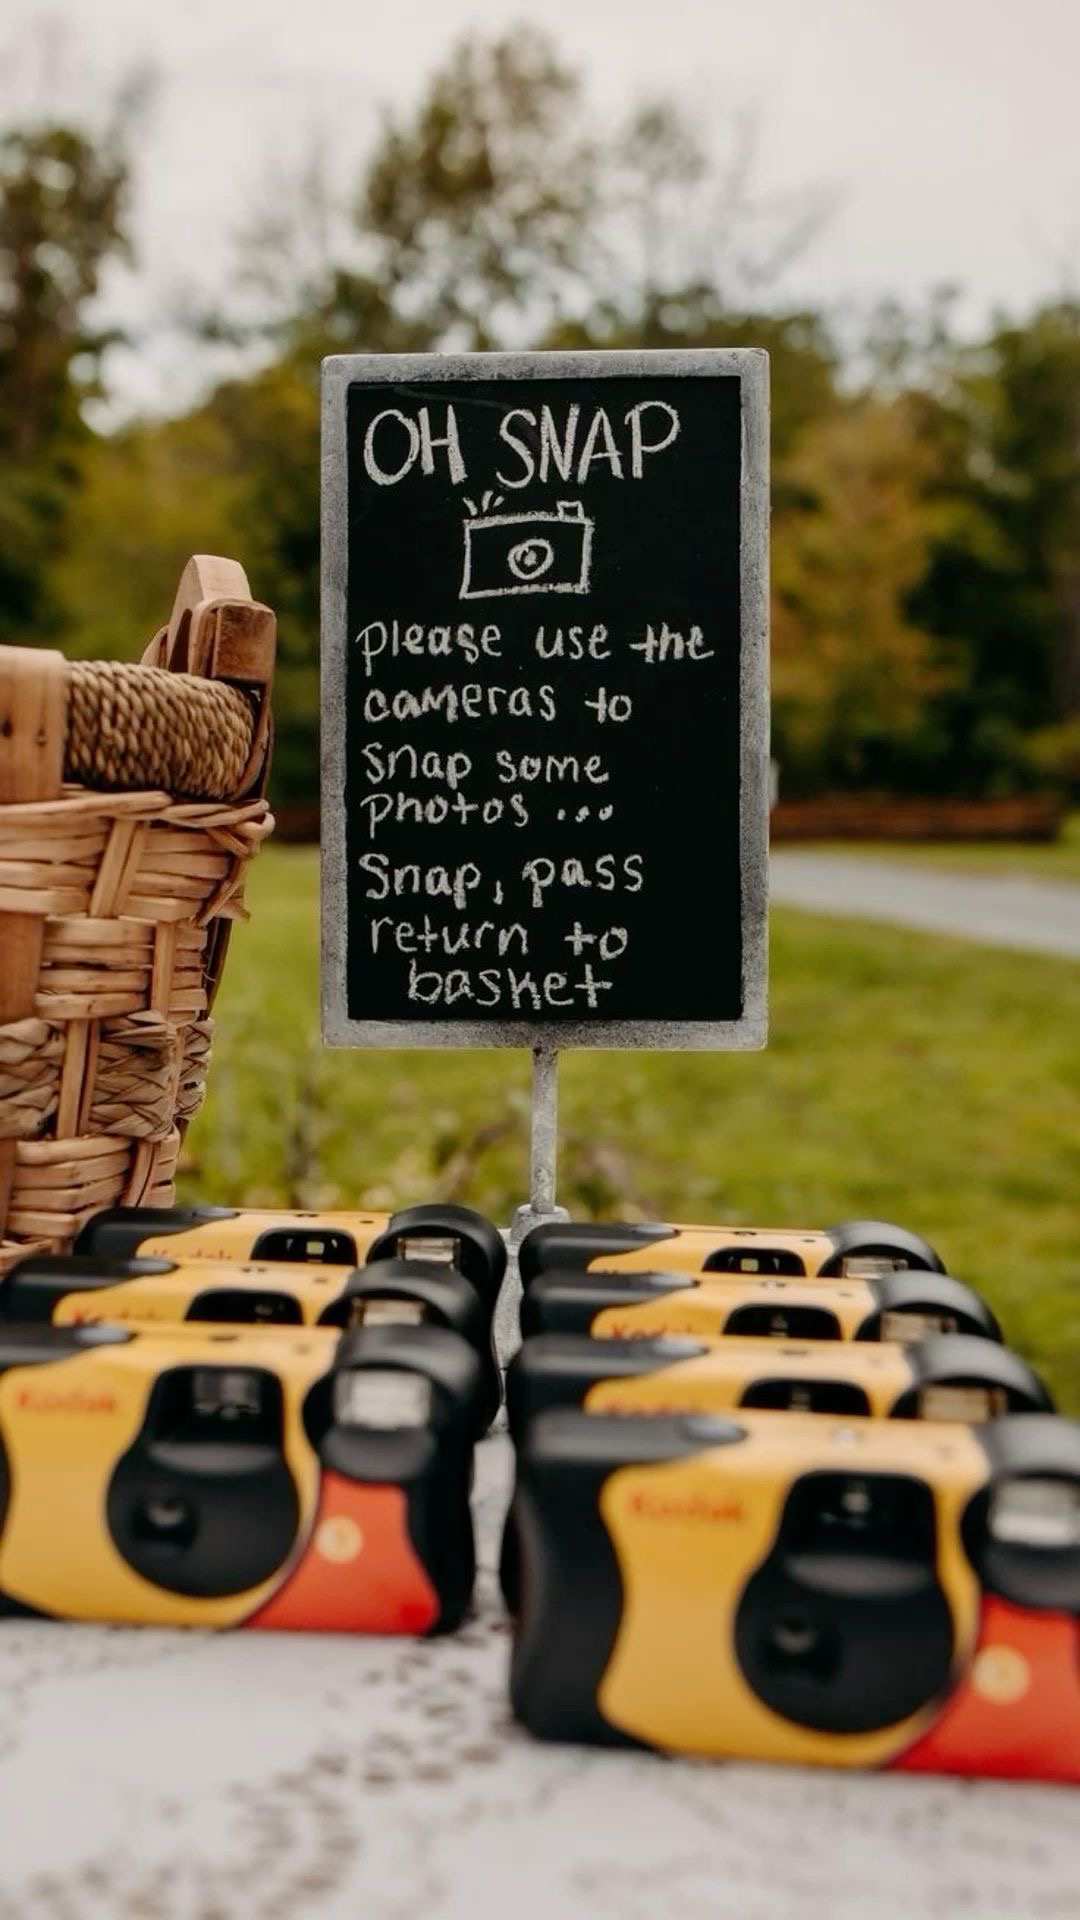 OH SNAP
please use the
cameras to
snap some
photos ...
Snap, pass
return to
basket
Kodak
Kodak
Kodak
Kodak
Kodak
Kodak